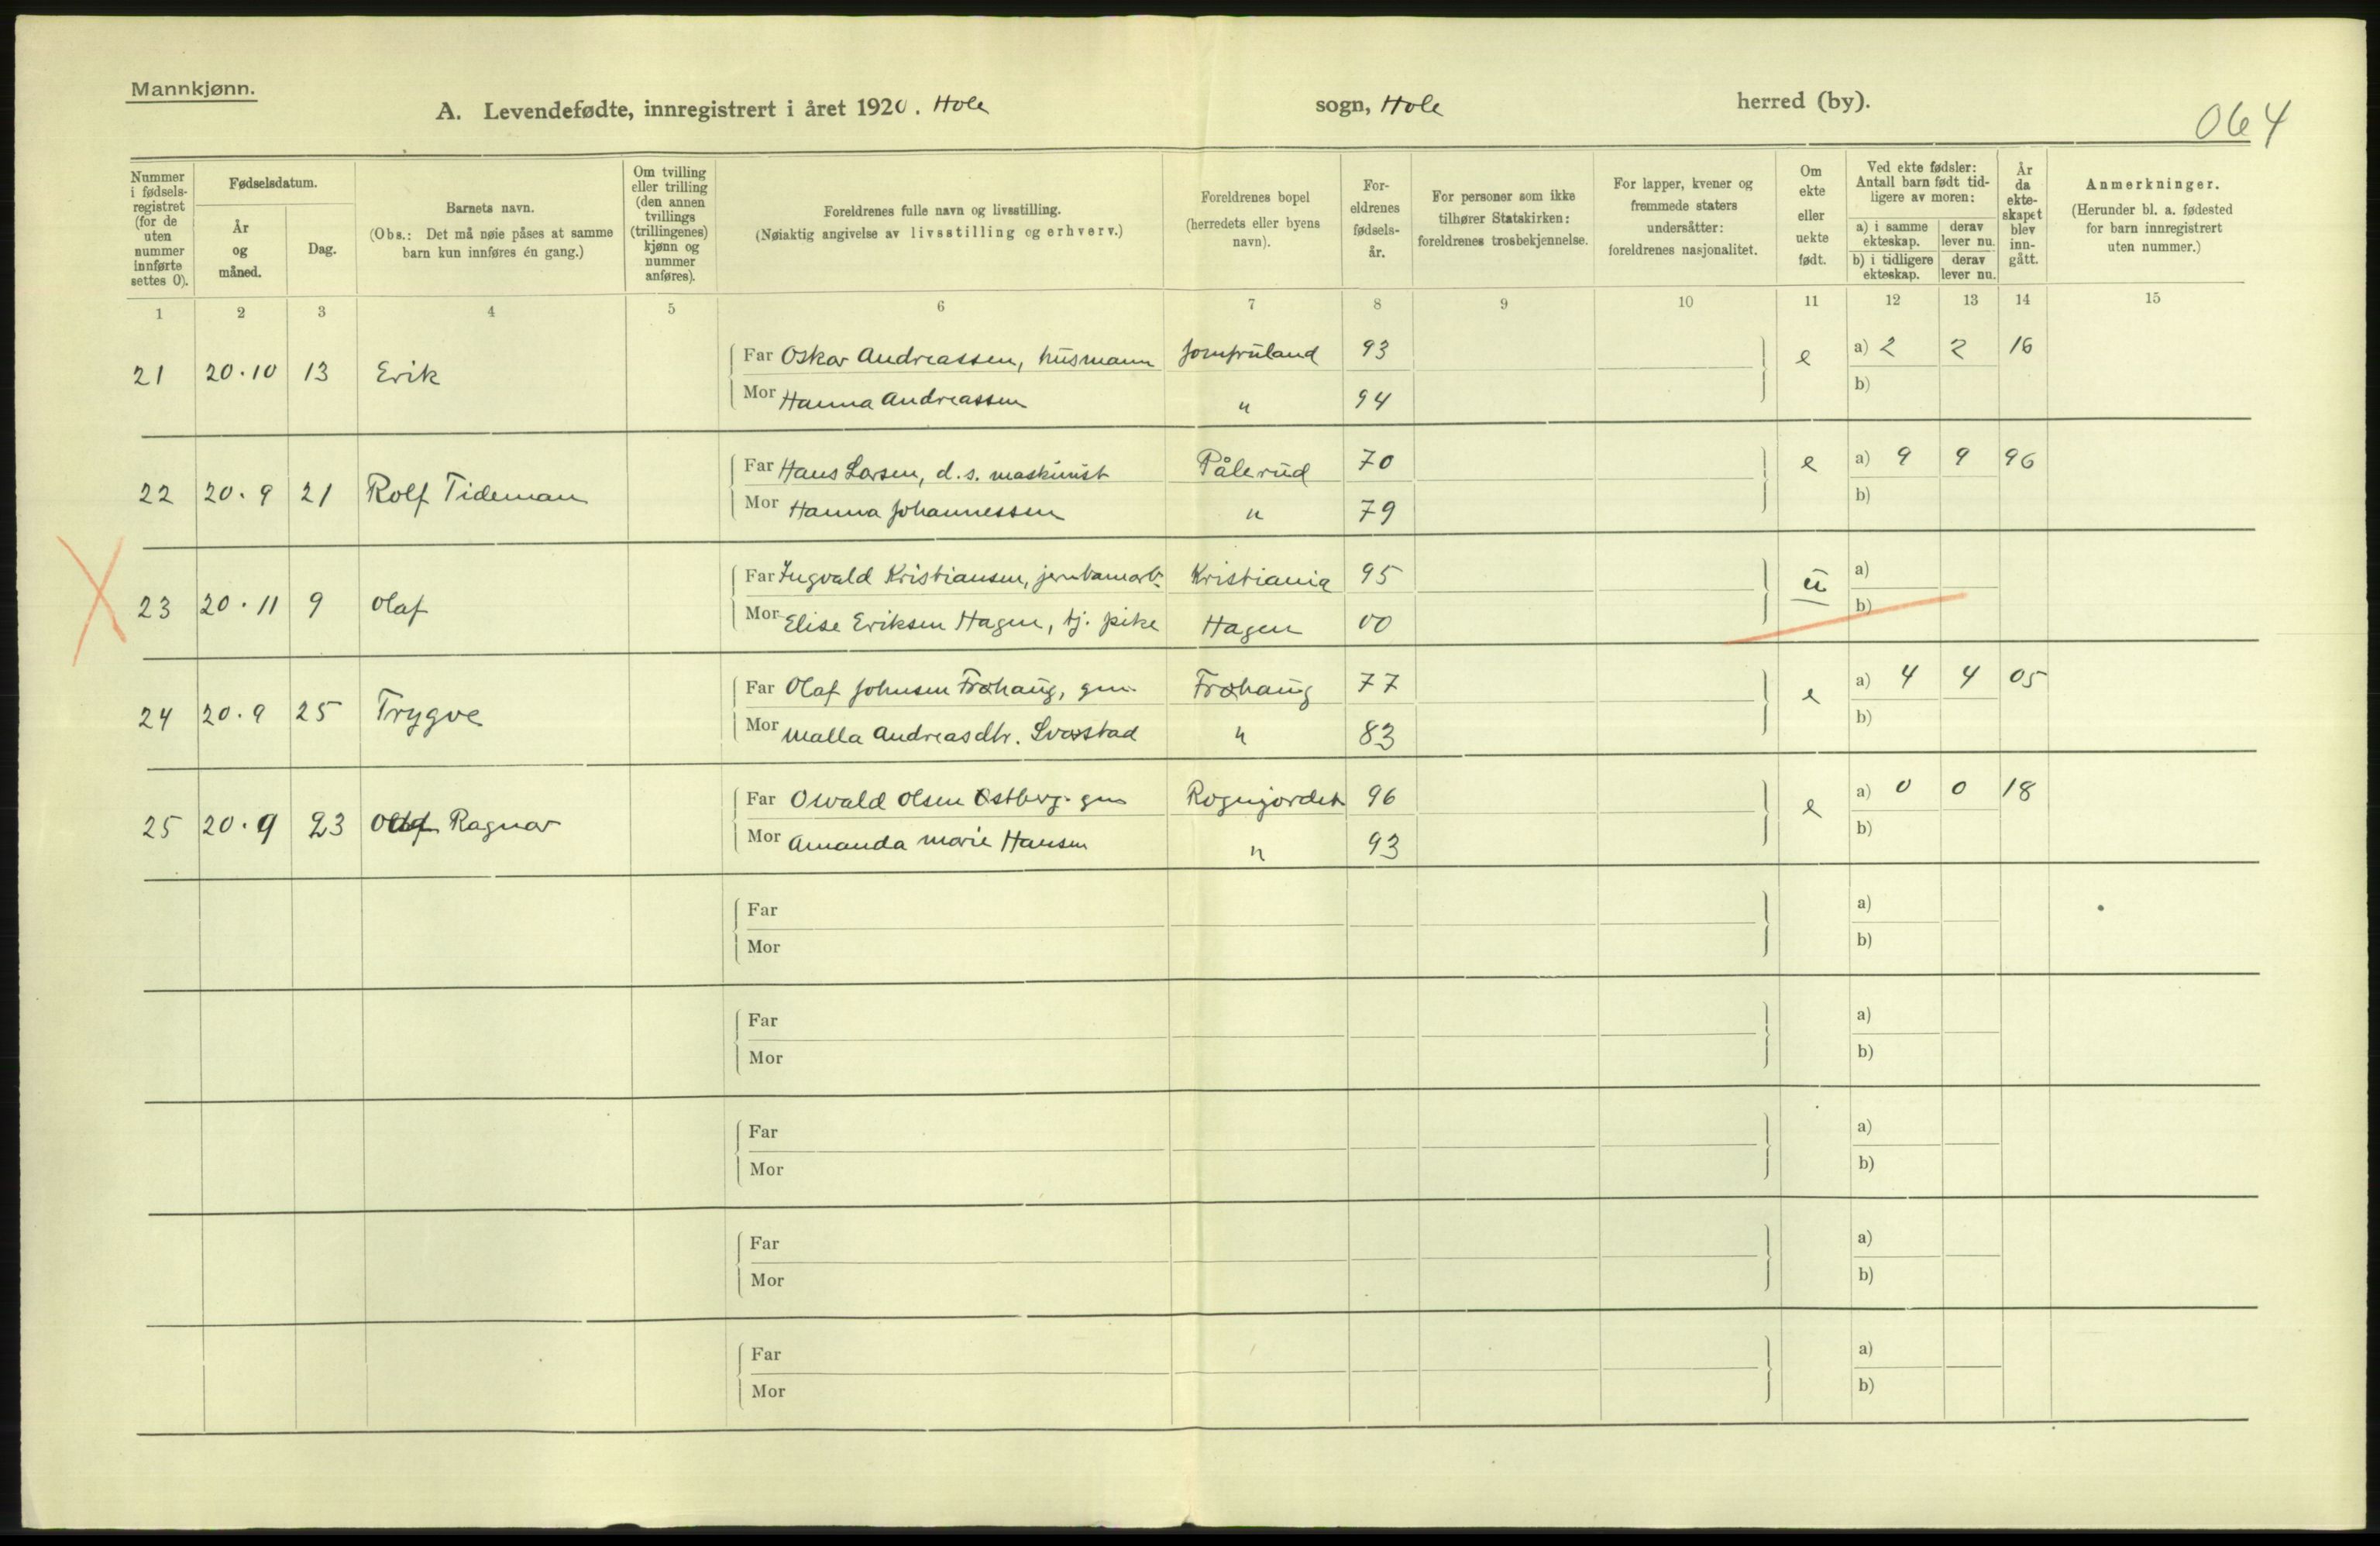 Mannkjønn.
A. Levendefødte, innregistrert i året 1920. Hole sogn, Hole herred (by).
064
Nummer i fødsels-registret (for de uten nummer innførte settes 0).
Fødselsdatum.
År og måned.
Dag.
Barnets navn.
(Obs.: Det må nøie påses at samme barn kun innføres én gang.)
Om tvilling eller trilling (den annen tvillings (trillingenes) kjønn og nummer anføres).
Foreldrenes fulle navn og livsstilling.
(Nøiaktig angivelse av livsstilling og erhverv.)
Foreldrenes bopel
(herredets eller byens navn).
For-eldrenes fødsels-år.
For personer som ikke tilhører Statskirken: foreldrenes trosbekjennelse.
For lapper, kvener og fremmede staters undersåtter: foreldrenes nasjonalitet.
Om ekte eller uekte født.
Ved ekte fødsler: Antall barn født tid-ligere av moren:
a) i samme ekteskap.
derav lever nu.
b) i tidligere ekteskap.
derav lever nu.
År da ekte-skapet blev inn-gått.
Anmerkninger.
(Herunder bl. a. fødested for barn innregistrert uten nummer.)
1 2 3 4 5 6 7 8 9 10 11 12 13 14 15
21 20.10 13 Erik
Far Oskar Andreassen, husmann Jomfruland 93 e a) 2 2 16
Mor Hanna Andreassen " 94 b)
22 20.9 21 Rolf Tideman
Far Hans Larsen, d.s. maskinist Pålerud 70 e a) 9 9 96
Mor Hanna Johannessen " 79 b)
23 20.11 9 Olaf
Far Ingvald Kristiansen, jernbanearb. Kristiania 95 u a)
Mor Elise Eriksen Hagen, tj. pike Hagen 00 b)
24 20.9 25 Trygve
Far Olaf Johnsen Frøhaug, gm. Frøhaug 77 e a) 4 4 05
Mor Malla Andreasdtr. Svarstad " 83 b)
25 20.9 23 Ragnar
Far Osvald Olsen Østberg. gm Rognjordet 96 e a) 0 0 18
Mor Amanda Marie Hansen " 93 b)
Far a)
Mor b)
Far a)
Mor b)
Far a)
Mor b)
Far a)
Mor b)
Far a)
Mor b)